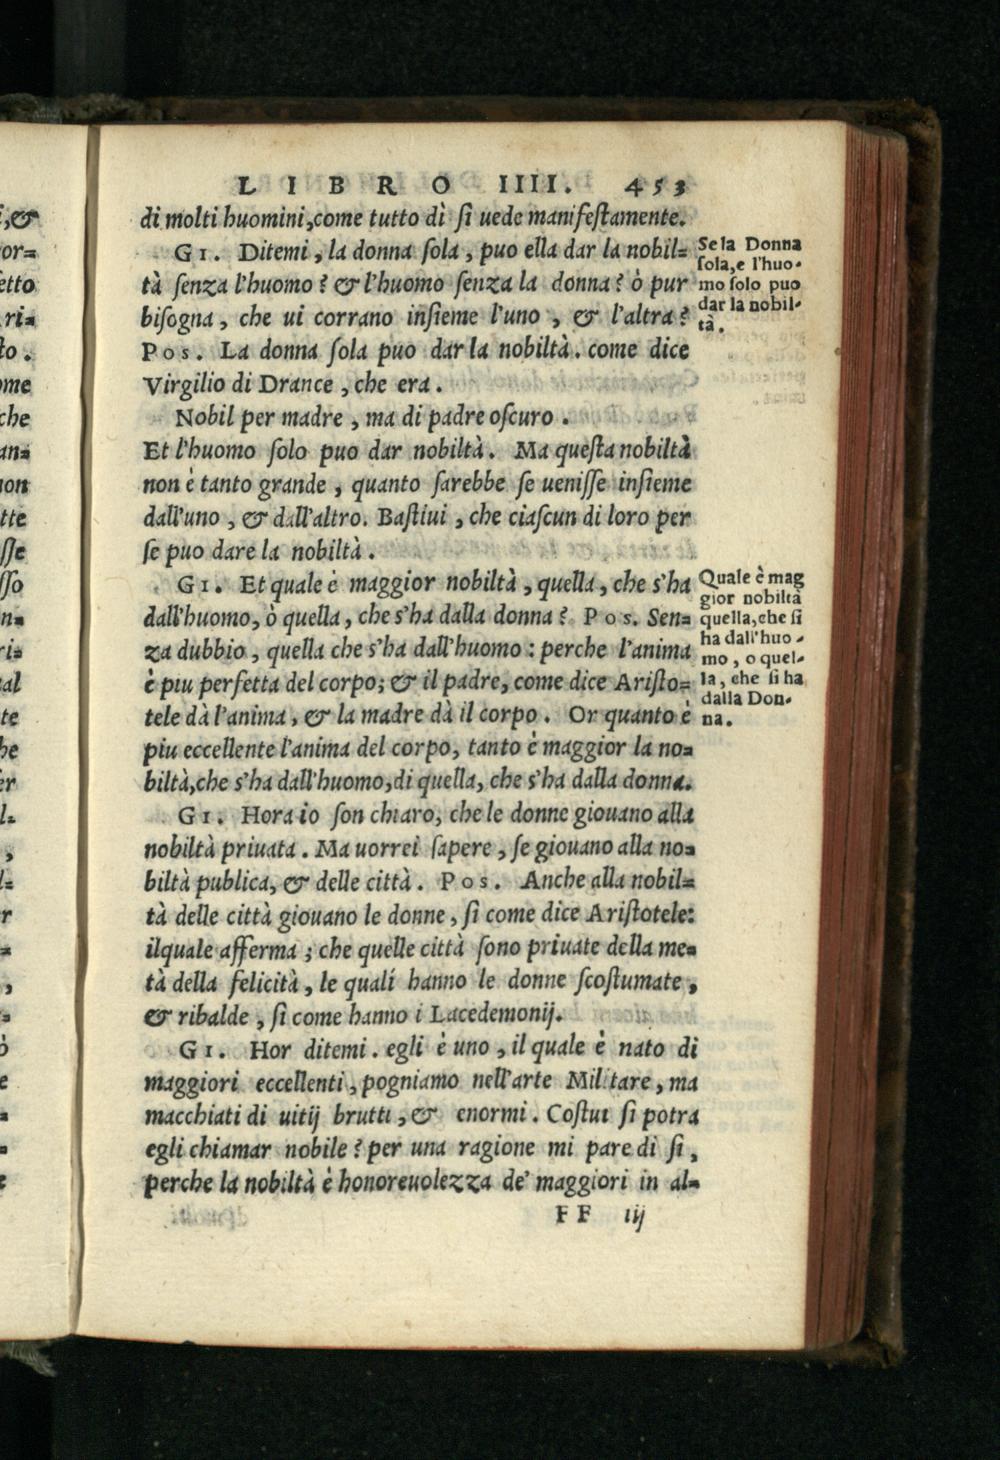 LIBRO IIII. 453
di molti huomini,come tutto dì si uede manifestamente.
GI. Ditemi, la donna sola, puo ella dar la nobil=
tà senza l'huomo? & l'huomo senza la donna? ò pur
bisogna, che ui corrano insieme l'uno, & l'altra?
Pos. La donna sola puo dar la nobiltà. come dice
Virgilio di Drance, che era.
Nobil per madre, ma di padre oscuro.
Et l'huomo solo puo dar nobiltà. Ma questa nobiltà
non è tanto grande, quanto sarebbe se uenisse insieme
dall'uno, & dall'altro. Bastiui, che ciascun di loro per
se puo dare la nobiltà.
GI. Et quale è maggior nobiltà, quella, che s'ha
dall'huomo, ò quella, che s'ha dalla donna? Pos. Sen=
za dubbio, quella che s'ha dall'huomo: perche l'anima
è piu perfetta del corpo; & il padre, come dice Aristo=
tele dà l'anima, & la madre dà il corpo. Or quanto è
piu eccellente l'anima del corpo, tanto è maggior la no=
biltà,che s'ha dall'huomo,di quella, che s'ha dalla donna.
GI. Hora io son chiaro, che le donne giouano alla
nobiltà priuata. Ma uorrei sapere, se giouano alla no=
biltà publica, & delle città. Pos. Anche alla nobil=
tà delle città giouano le donne, si come dice Aristotele:
ilquale afferma; che quelle città sono priuate della me=
tà della felicità, le quali hanno le donne scostumate,
& ribalde, si come hanno i Lacedemonij.
GI. Hor ditemi. egli è uno, il quale è nato di
maggiori eccellenti, pogniamo nell'arte Militare, ma
macchiati di uitij brutti, & enormi. Costui si potra
egli chiamar nobile? per una ragione mi pare di si,
perche la nobiltà è honoreuolezza de' maggiori in al=
FF iij
Se la Donna
sola,e l'huo-
mo solo puo
dar la nobil-
tà.
Quale è mag
gior nobiltà
quella,che si
ha dall'huo-
mo, o quel-
la, che si ha
dalla Don-
na.